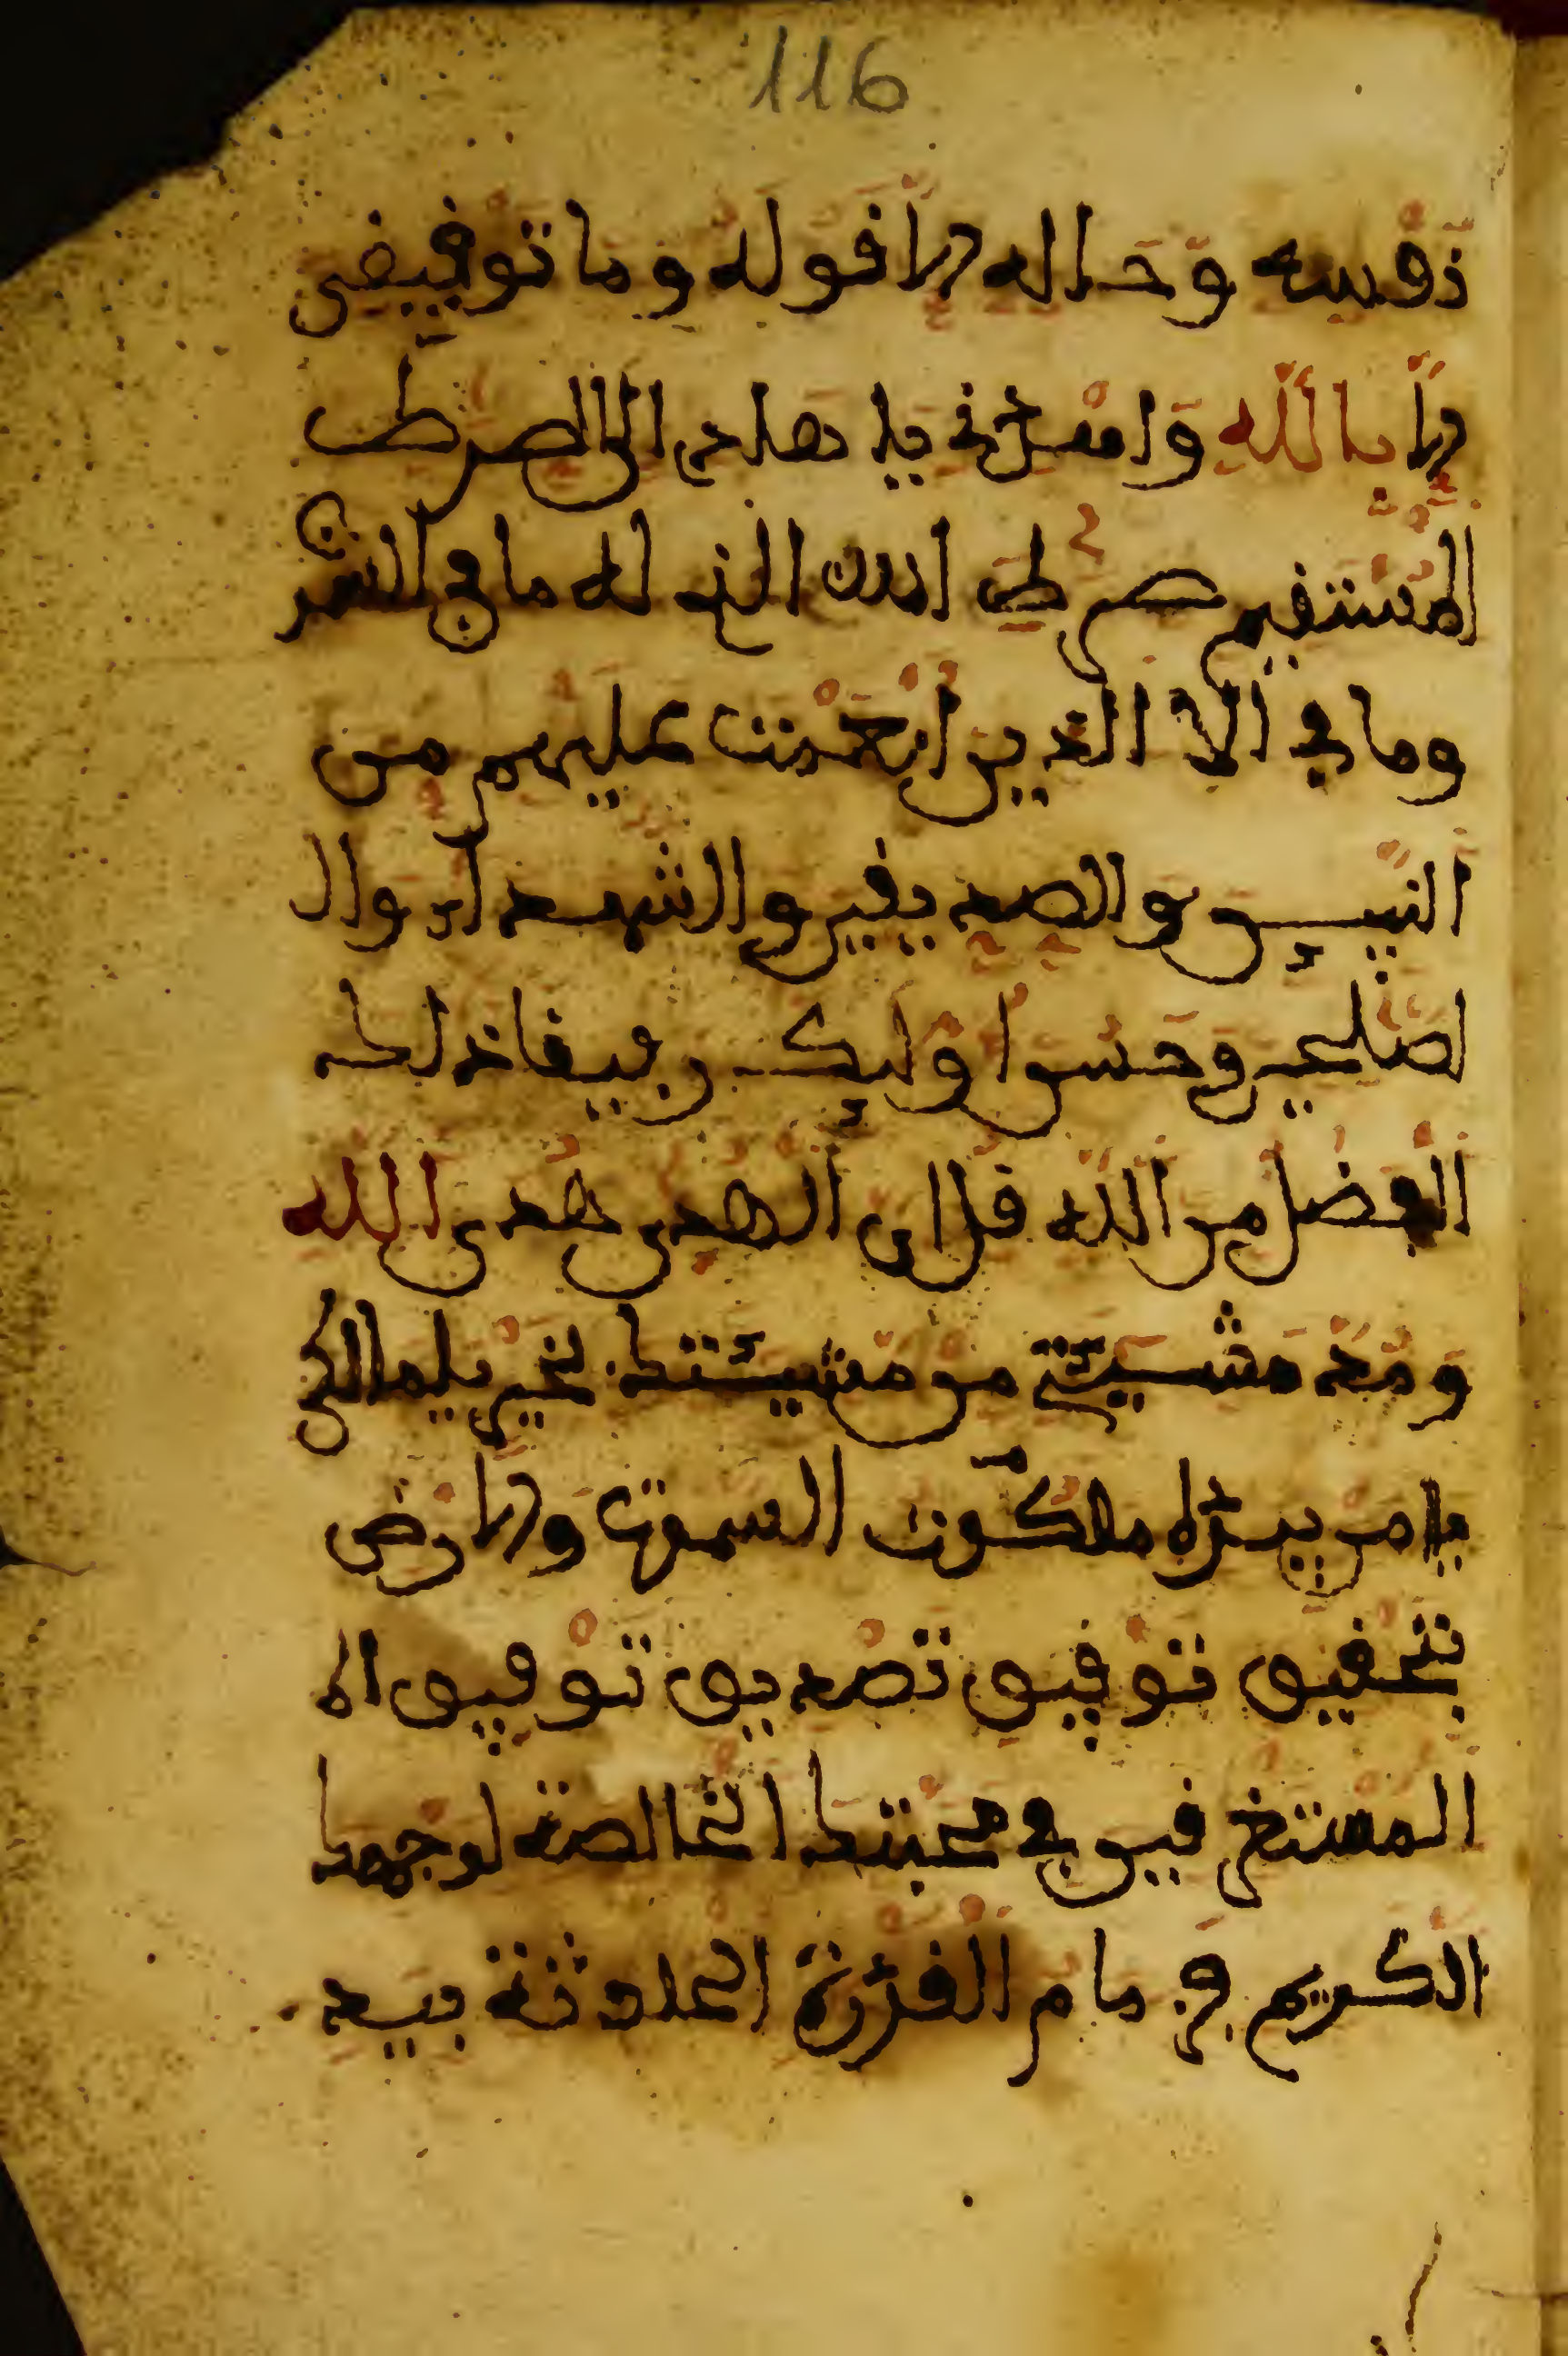 116
نفسه وحاله ولا قوله وما توفيقي
الا بالله وامنحني يا هادي الى الصرط
المستقيم صرط الله الذي له ما في السمو
وما في الا الذين انعمت عليهم من
النبيين والصديقين والشهداء وال
لصلحين وحسن اوليك رفيقا ذلك
الفضل من الله قل ان الهدى هدى الله
ومد مشيئتي من مشيئتك يا مالك
يا من بيده ملكوت السموت والارض
بتحقيق توفيق تصديق توفيق الا
المستغرقين في محبتك الخالصة لوجهك
الكريم في مام القدرة الحادثة بيد